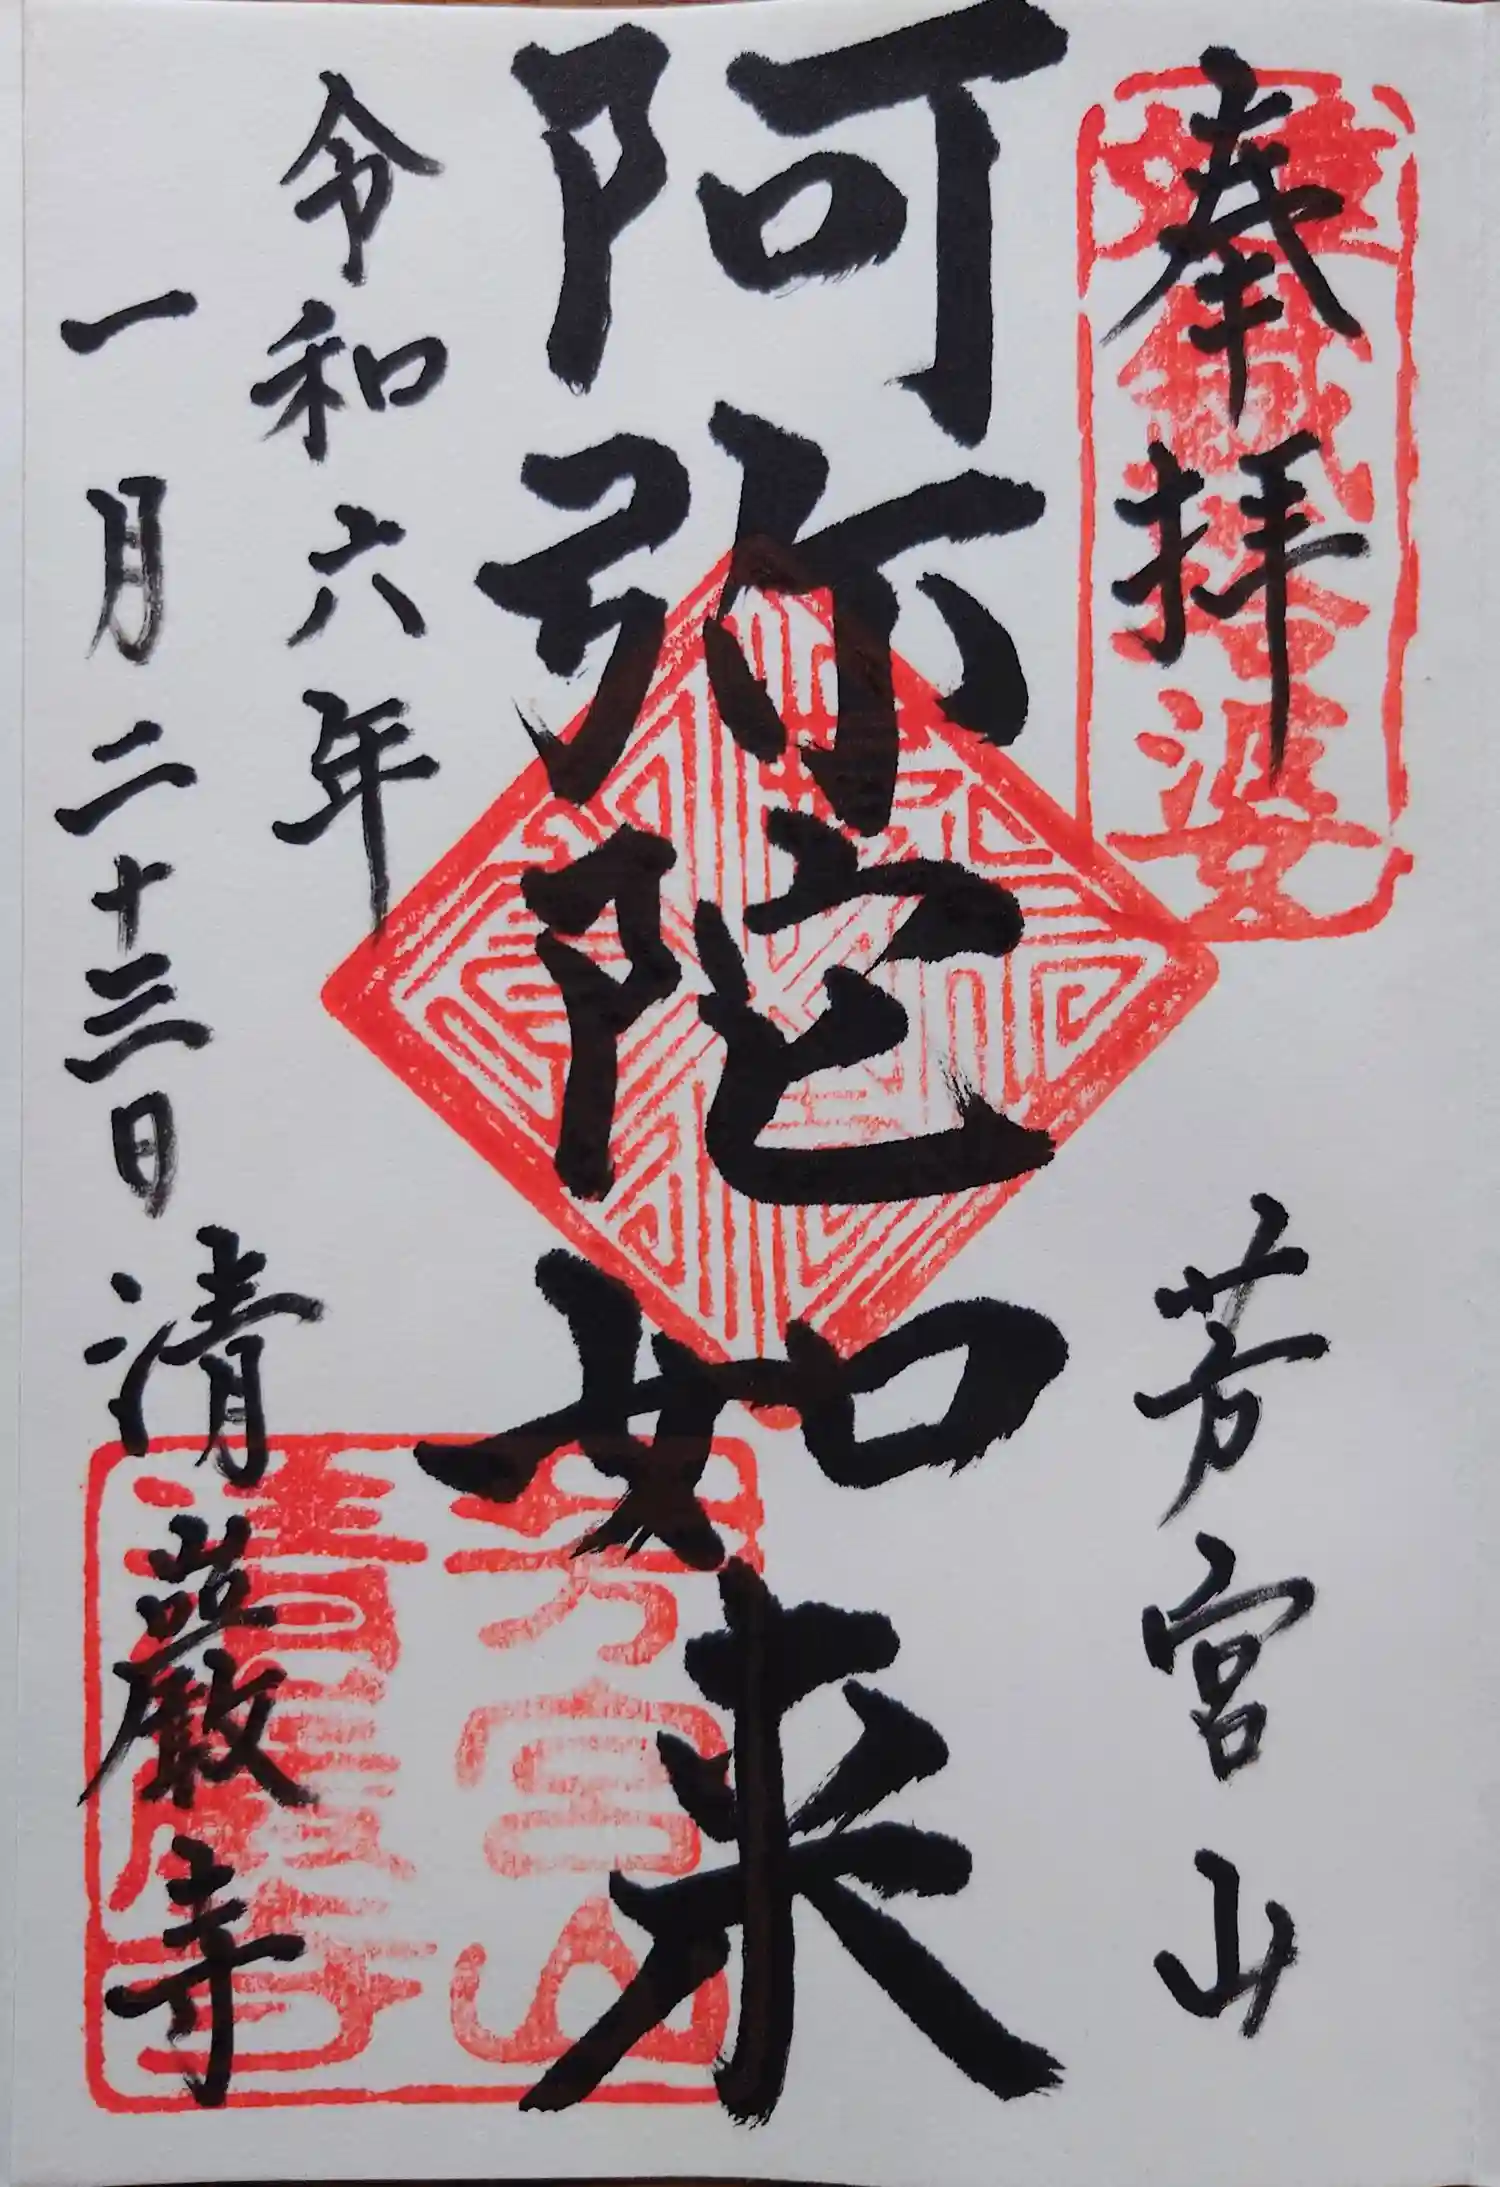 奉拝
芳宮山
阿弥陀如来
令和六年
一月二十三日
清巌寺
芳宮山